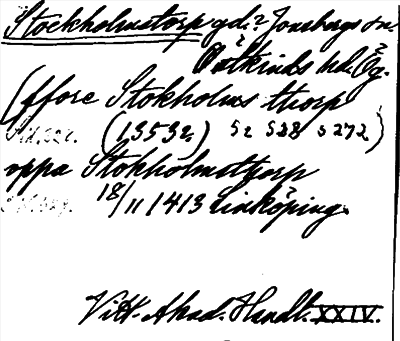 Stockholmstorp gd.? Jonsbergs sn.
Östkinds hd. Ög.
(ffore Stokholms thorp
(1353?) S2 528 s 272)
oppa Stokholmstorp
18/11 1413 Linköping.
Vitt. Akad. Handl. XXIV.